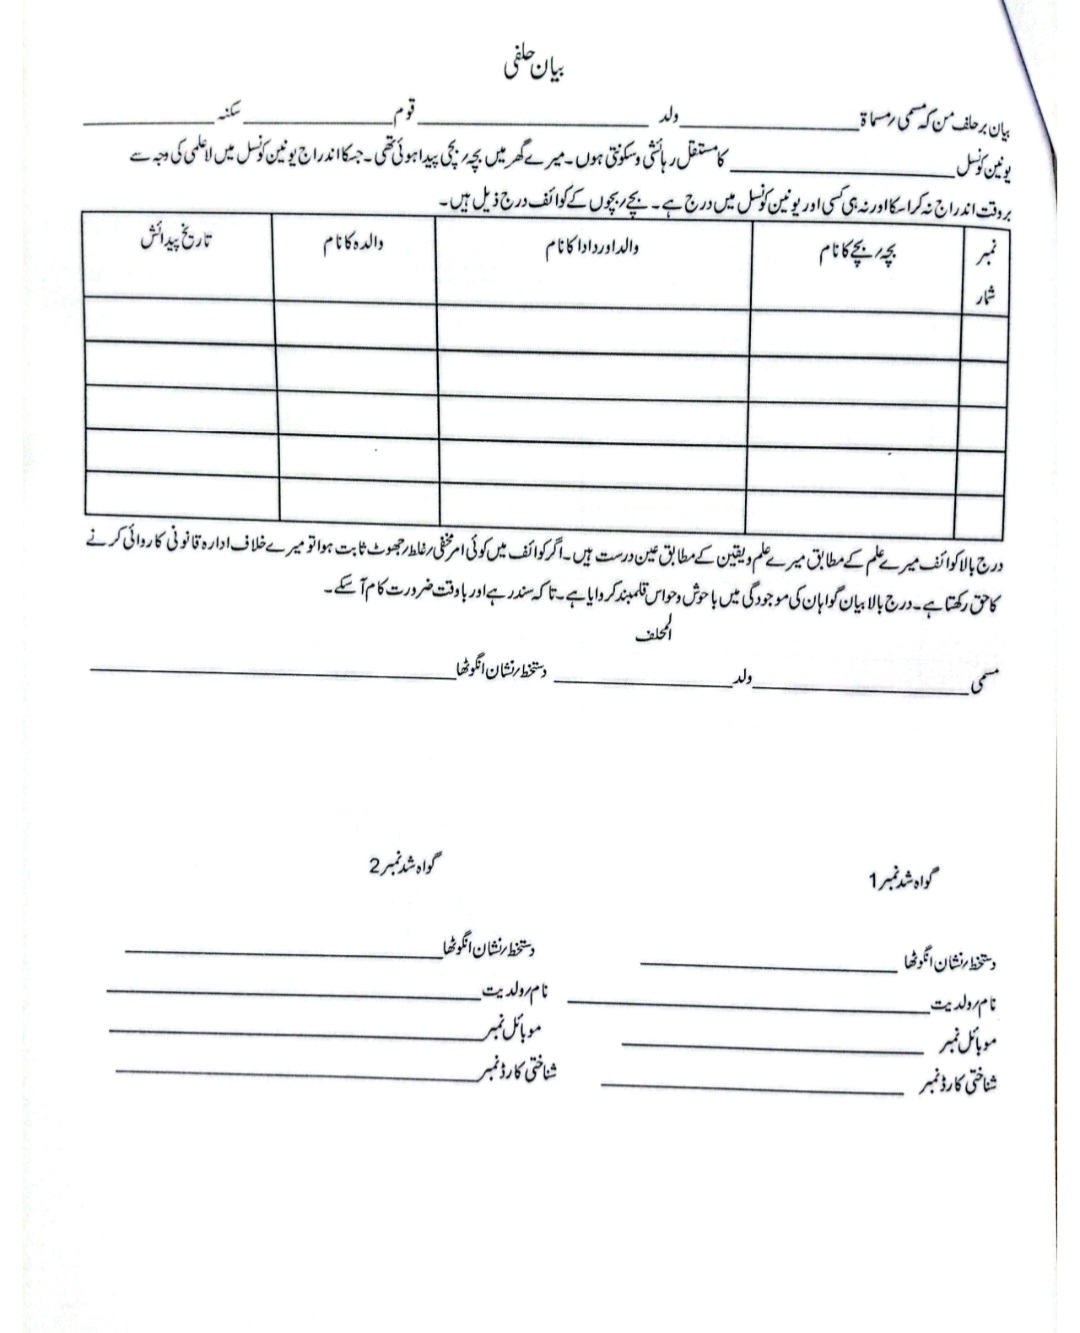 بیان حلفی
بیان بر حلف من کہ مسمی/مسماۃ ____________ ولد ____________ قوم ____________ سکنہ ____________
یونین کونسل ____________ کا مستقل رہائشی و سکونتی ہوں۔ میرے گھر میں بچہ/بچی پیدا ہوئی تھی۔ جسکا اندراج یونین کونسل میں لا علمی کی وجہ سے
بر وقت اندراج نہ کرا سکا اور نہ ہی کسی اور یونین کونسل میں درج ہے۔ بچے/بچوں کے کوائف درج ذیل ہیں۔
نمبر شمار | بچہ/بچے کا نام | والد اور دادا کا نام | والدہ کا نام | تاریخ پیدائش
درج بالا کوائف میرے علم کے مطابق میرے علم و یقین کے مطابق عین درست ہیں۔ اگر کوائف میں کوئی امر مخفی/غلط/جھوٹ ثابت ہوا تو میرے خلاف ادارہ قانونی کاروائی کرنے
کا حق رکھتا ہے۔ درج بالا بیان گواہان کی موجودگی میں با حوش و حواس قلمبند کروایا ہے۔ تا کہ سند رہے اور با وقت ضرورت کام آ سکے۔
المحلف
مسمی ____________ ولد ____________ دستخط/نشان انگوٹھا ____________
گواہ شد نمبر 1
دستخط/نشان انگوٹھا ____________
نام/ولدیت ____________
موبائل نمبر ____________
شناختی کارڈ نمبر ____________
گواہ شد نمبر 2
دستخط/نشان انگوٹھا ____________
نام/ولدیت ____________
موبائل نمبر ____________
شناختی کارڈ نمبر ____________